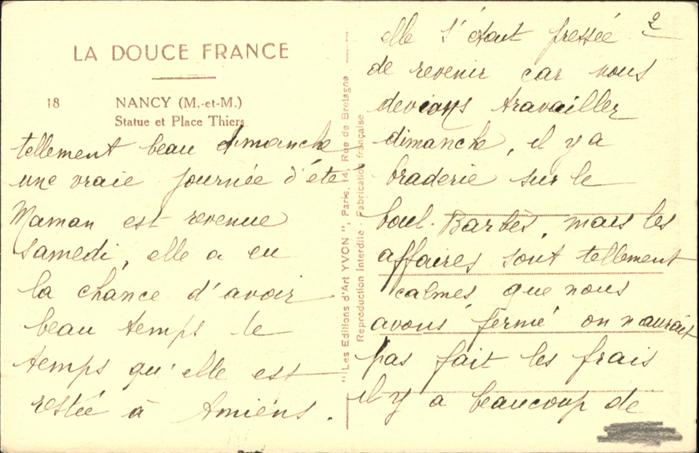 LA DOUCE FRANCE
18 NANCY (M.-et-M.)
Statue et Place Thiers
tellement beau dimanche
une vraie journée d'été
Maman est revenue
samedi, elle a eu
la chance d'avoir
beau temps le
temps qu'elle est
restée à Amiéns.
"Les Editions d'Art YVON", Paris, 14, Rue de Bretagne
Reproduction Interdite, Fabrication française
2
elle s'étaut pressée
de revenir car nous
devions travailler
dimanche, il y a
braderie sur le
boul. Barbès, mais les
affaires sont tellement
calmés, que nous
avons fermé on n'aurait
pas fait les frais
il y a beaucoup de